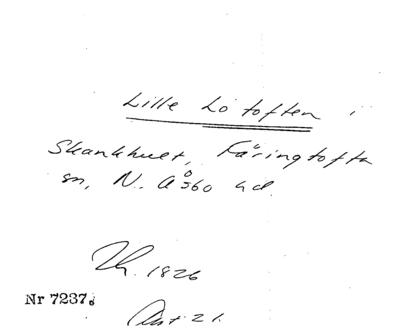 Lille Lötoften i
Skankhult, Färingtofta
sn, N. Åsbo hd.
Th. 1826
Nr 7237.
Ant 21.